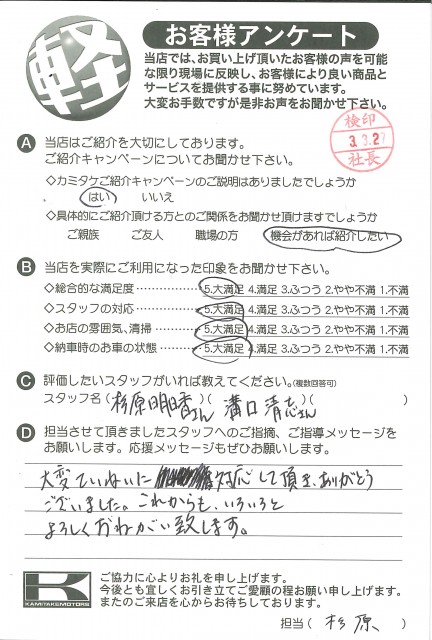 軽
お客様アンケート
当店では、お買い上げ頂いたお客様の声を可能
な限り現場に反映し、お客様により良い商品と
サービスを提供する事に努めています。
大変お手数ですが是非お声をお聞かせ下さい。
検印
3.3.27
社長
A 当店はご紹介を大切にしております。
ご紹介キャンペーンについてお聞かせ下さい。
◇カミタケご紹介キャンペーンのご説明はありましたでしょうか
はい いいえ
◇具体的にご紹介頂ける方とのご関係をお聞かせ頂けますでしょうか
ご親族 ご友人 職場の方 機会があれば紹介したい
B 当店を実際にご利用になった印象をお聞かせ下さい。
◇総合的な満足度 5.大満足 4.満足 3.ふつう 2.やや不満 1.不満
◇スタッフの対応 5.大満足 4.満足 3.ふつう 2.やや不満 1.不満
◇お店の雰囲気、清掃 5.大満足 4.満足 3.ふつう 2.やや不満 1.不満
◇納車時のお車の状態 5.大満足 4.満足 3.ふつう 2.やや不満 1.不満
C 評価したいスタッフがいれば教えてください。(複数回答可)
スタッフ名(杉原明日香さん)(溝口清志さん)( )
D 担当させて頂きましたスタッフへのご指摘、ご指導メッセージを
お願いします。応援メッセージもぜひお願いします。
大変ていねいに対応して頂き、ありがとう
ございました。これからも、いろいろと
よろしくおねがい致します。
K
KAMITAKE MOTORS
ご協力に心よりお礼を申し上げます。
今後とも宜しくお引き立てご愛顧の程お願い申し上げます。
またのご来店を心からお待ちしております。
担当(杉原)